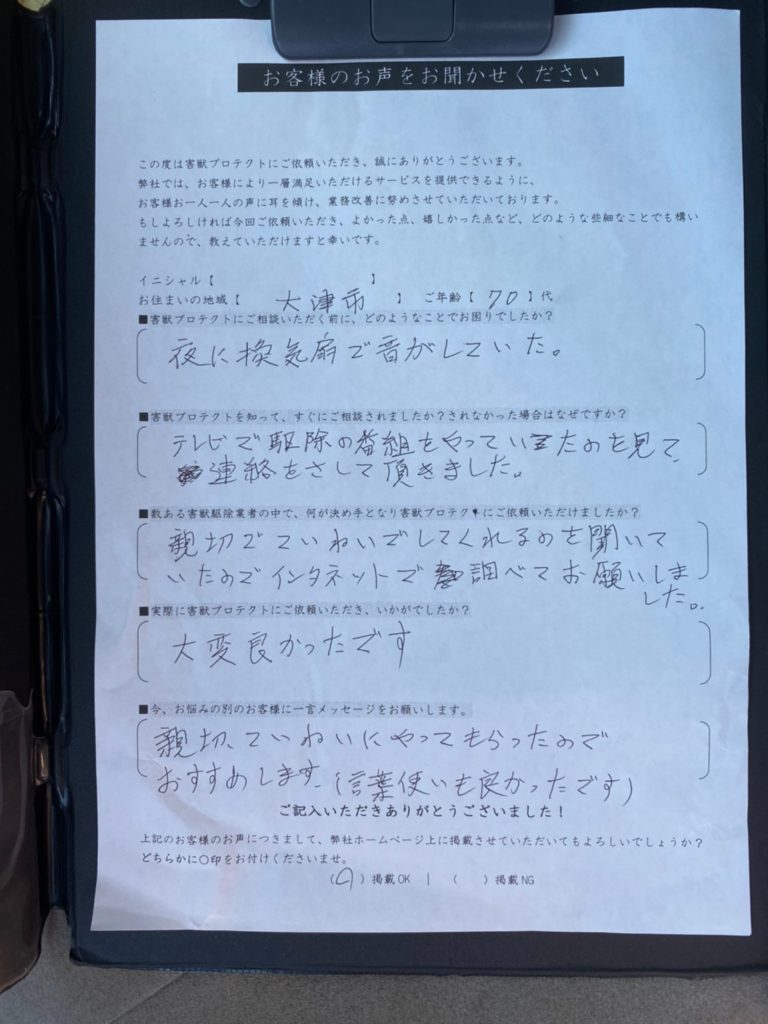 お客様のお声をお聞かせください
この度は害獣プロテクトにご依頼いただき、誠にありがとうございます。
弊社では、お客様により一層満足いただけるサービスを提供できるように、
お客様お一人一人の声に耳を傾け、業務改善に努めさせていただいております。
もしよろしければ今回ご依頼いただき、よかった点、嬉しかった点など、どのような些細なことでも構い
ませんので、教えていただけますと幸いです。
イニシャル【 】
お住まいの地域【 大津市 】 ご年齢【 70 】代
■害獣プロテクトにご相談いただく前に、どのようなことでお困りでしたか?
夜に換気扇で音がしていた。
■害獣プロテクトを知って、すぐにご相談されましたか?されなかった場合はなぜですか?
テレビで駆除の番組をやっていたのを見て
連絡をさして頂きました。
■数ある害獣駆除業者の中で、何が決め手となり害獣プロテクトにご依頼いただけましたか?
親切でていねいでしてくれるのを聞いて
いたのでインタネットで調べてお願いしま
した。
■実際に害獣プロテクトにご依頼いただき、いかがでしたか?
大変良かったです
■今、お悩みの別のお客様に一言メッセージをお願いします。
親切、ていねいにやってもらったので
おすすめします。(言葉使いも良かったです)
ご記入いただきありがとうございました!
上記のお客様のお声につきまして、弊社ホームページ上に掲載させていただいてもよろしいでしょうか?
どちらかに〇印をお付けくださいませ。
(〇)掲載OK | ( )掲載NG